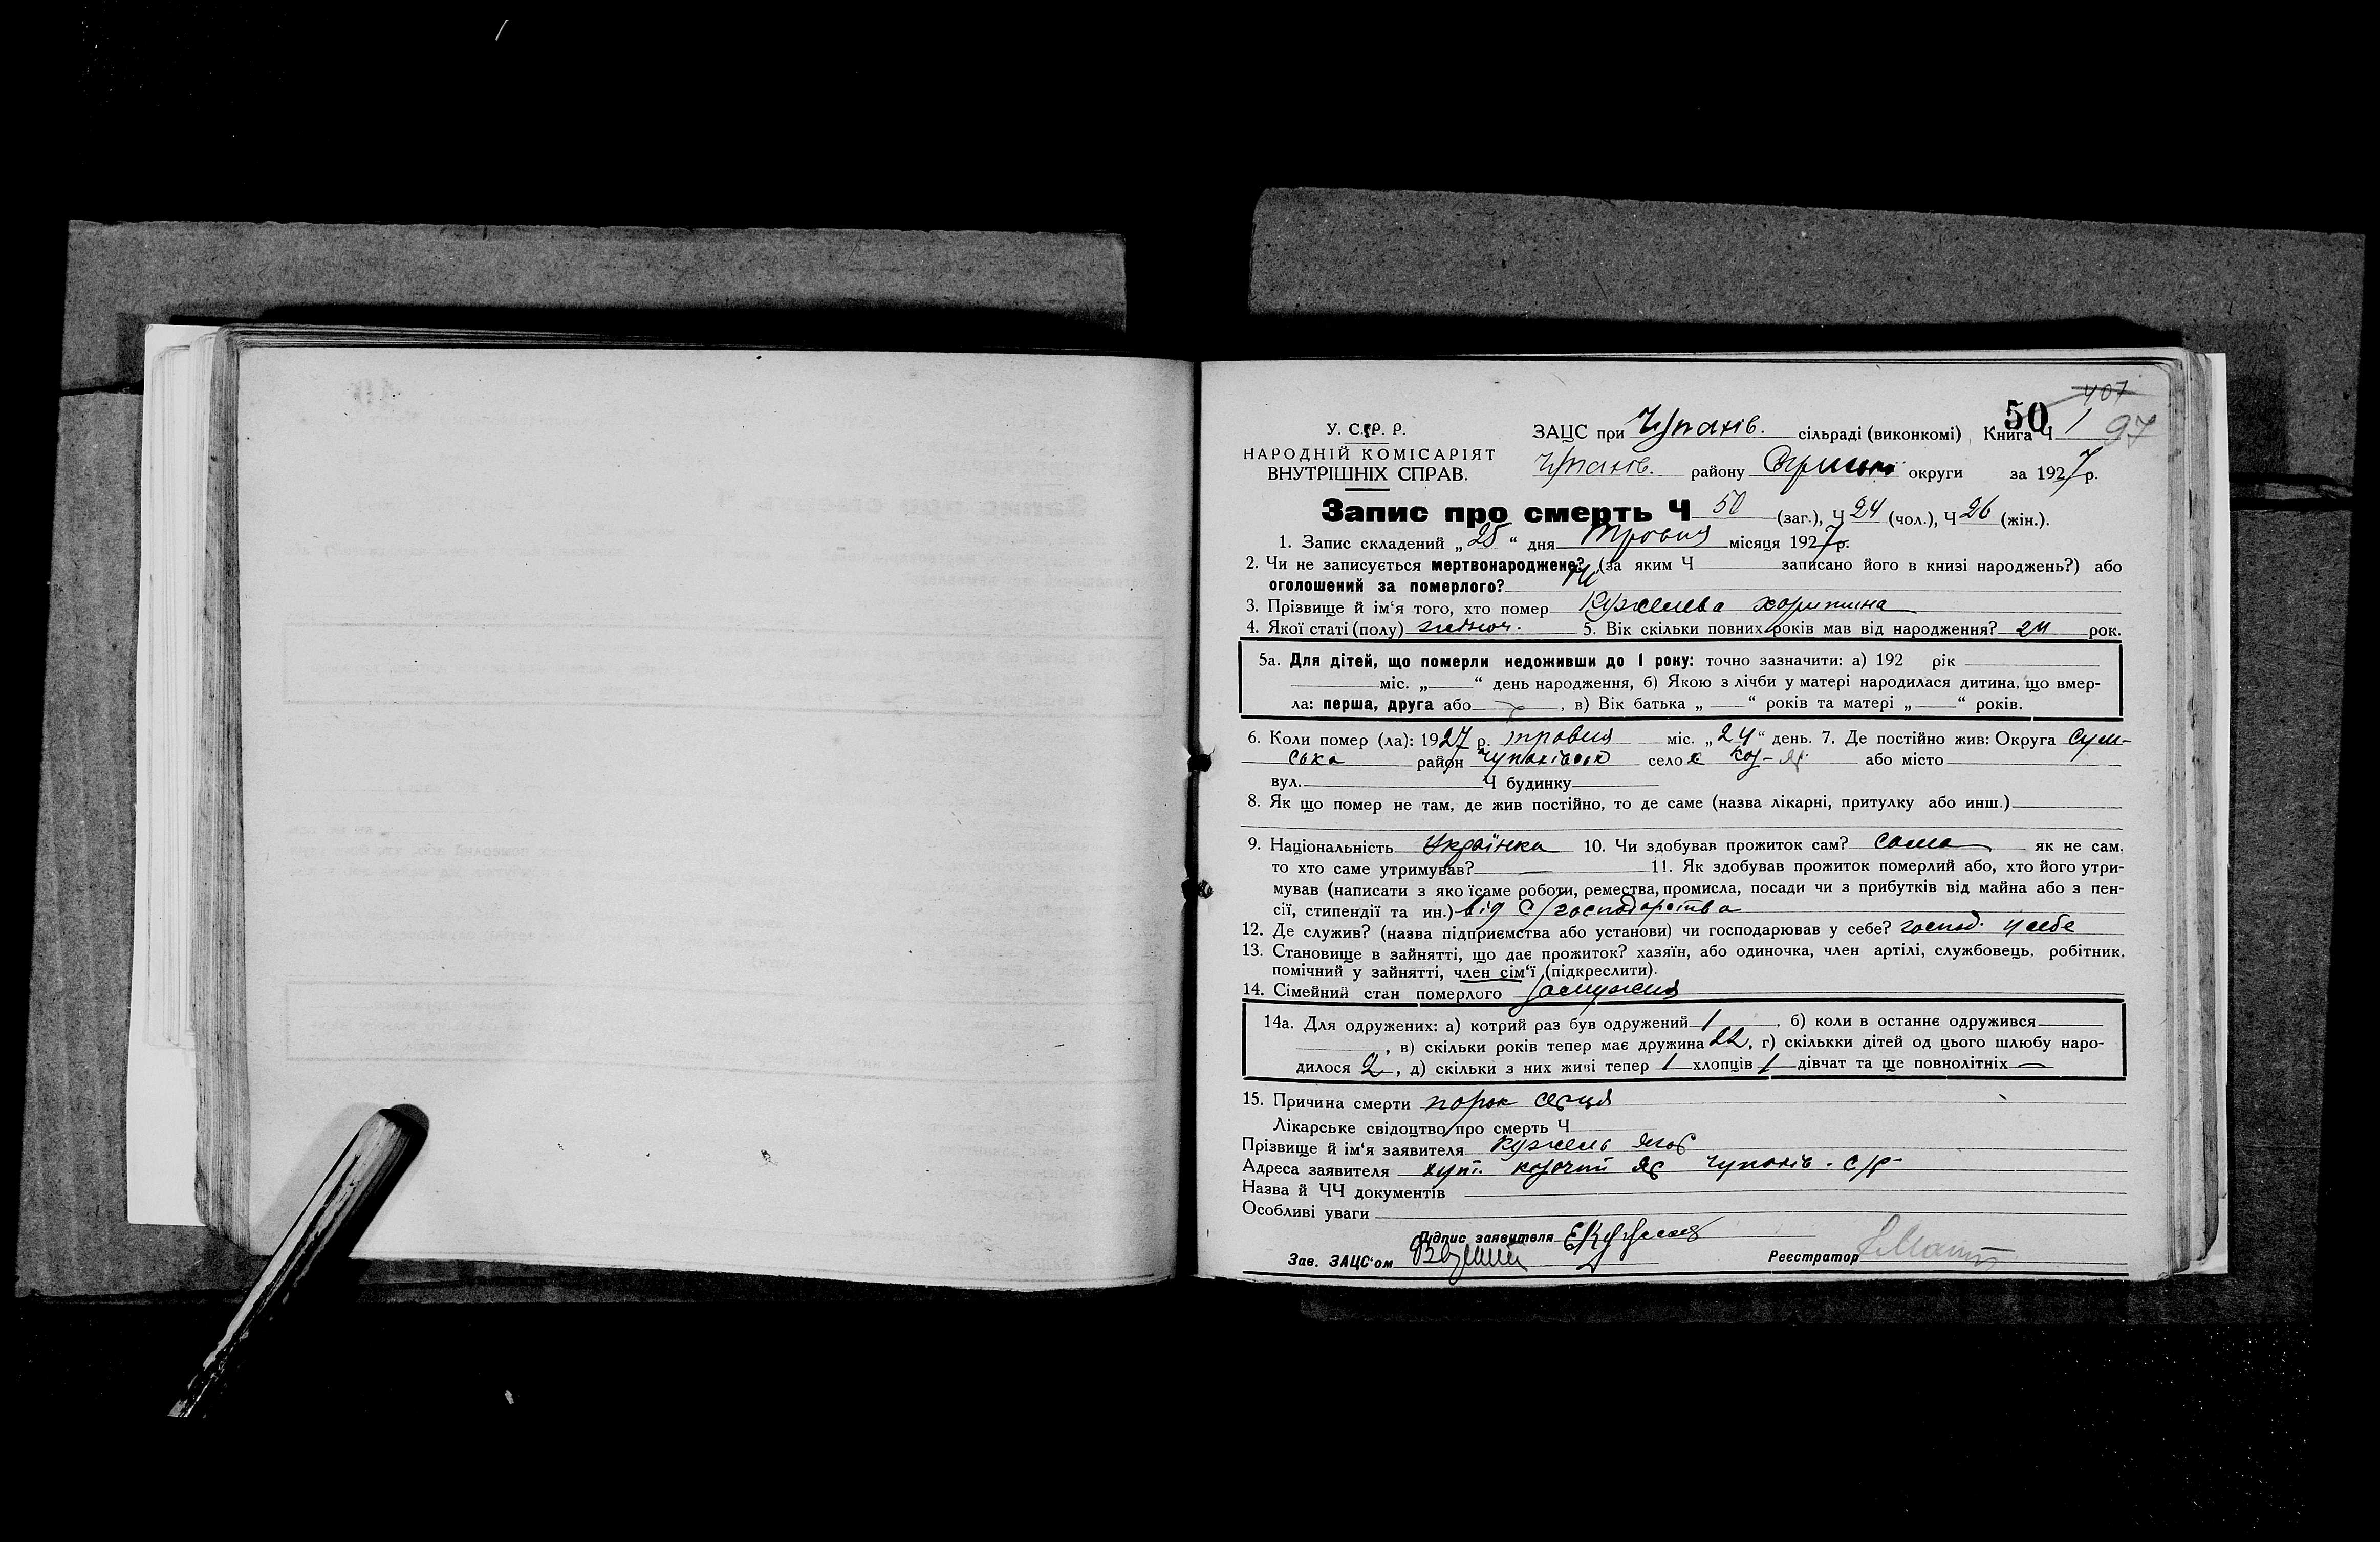 407
50
97
У. С. Р. Р.
НАРОДНІЙ КОМІСАРІЯТ
ВНУТРІШНІХ СПРАВ.
ЗАЦС при Чупахів. сільраді (виконкомі) Книга Ч 1
Чупахів. району округи за 1927 р.
Запис про смерть Ч 50 (заг.), Ч 24 (чол.), Ч 26 (жін.).
1. Запис складений „25“ дня Травня місяця 1927 р.
2. Чи не записується мертвонароджене? (за яким Ч записано його в книзі народжень?) або
оголошений за померлого? Ні
3. Прізвище й ім'я того, хто помер Кужелева Хоритина
4. Якої статі (полу) жіноч. 5. Вік скільки повних років мав від народження? 24 рок.
5а. Для дітей, що померли недоживши до 1 року: точно зазначити: а) 192 рік
міс. „ “ день народження, б) Якою з лічби у матері народилася дитина, що вмер-
ла: перша, друга або , в) Вік батька „ “ років та матері „ “ років.
6. Коли помер (ла): 1927 р. травня міс. „24“ день. 7. Де постійно жив: Округа Сум-
ська район Чупахівськ село х Коз-Яр або місто
вул. Ч будинку
8. Як що помер не там, де жив постійно, то де саме (назва лікарні, притулку або инш.)
9. Національність Українка 10. Чи здобував прожиток сам? Сама як не сам,
то хто саме утримував? — 11. Як здобував прожиток померлий або, хто його утри-
мував (написати з яко їсаме роботи, ремества, промисла, посади чи з прибутків від майна або з пен-
сії, стипендії та ин.) від С/господарства
12. Де служив? (назва підприємства або установи) чи господарював у себе? господ. у себе
13. Становище в зайнятті, що дає прожиток? хазяїн, або одиночка, член артілі, службовець, робітник,
помічний у зайнятті, член сім'ї (підкреслити).
14. Сімейний стан померлого Замужня
14а. Для одружених: а) котрий раз був одружений 1 , б) коли в останнє одружився
, в) скільки років тепер має дружина 22, г) скількки дітей од цього шлюбу наро-
дилося 2, д) скільки з них живі тепер 1 хлопців 1 дівчат та ще повнолітніх —
15. Причина смерти порок серця
Лікарське свідоцтво про смерть Ч
Прізвище й ім'я заявителя Кужель Єгор
Адреса заявителя хут. Козачий Яр Чупахів. С/р
Назва й ЧЧ документів
Особливі уваги
Підпис заявителя
Зав. ЗАЦС'ом Реєстратор